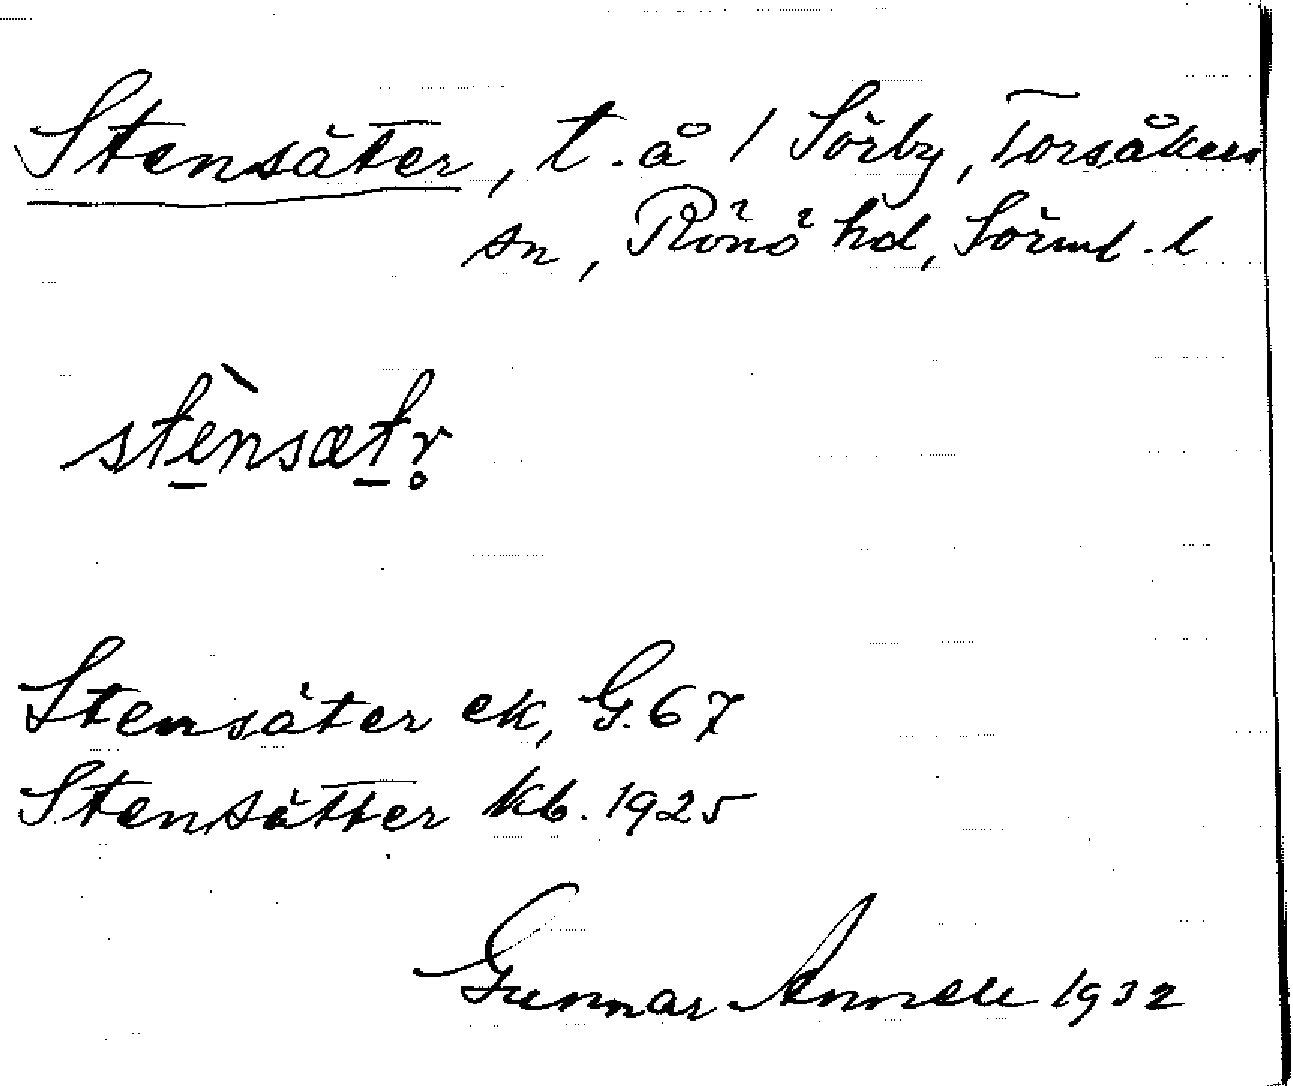 Stensäter, t. å 1 Sörby, Torsåkers
sn, Rönö hd, Sörml. l
stènsætr̥
Stensäter ek, G. 67
Stensätter kb. 1925
Gunnar Annell 1932